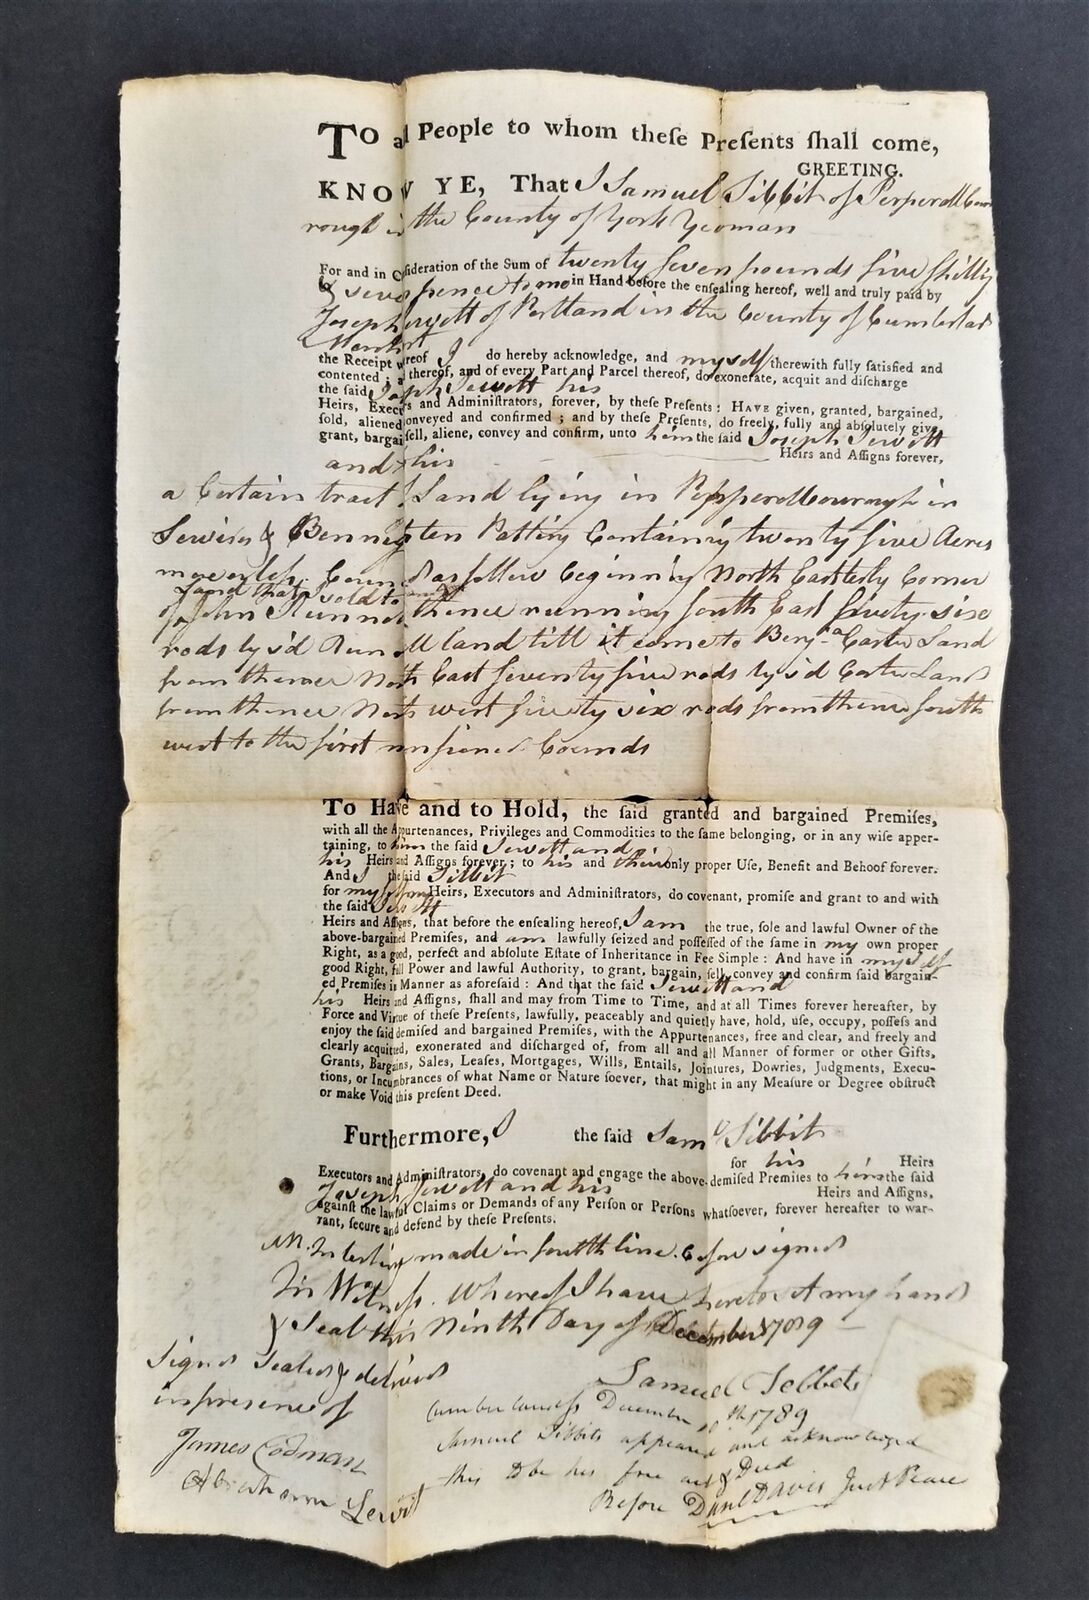 To all People to whom theſe Preſents ſhall come,
GREETING.
KNOW YE, That I Samuel Sibbit of Perperellbour
rough in the County of York Yeoman
For and in Conſideration of the Sum of twenty ſeven pounds five ſhilling
& pence to me in Hand before the enſealing hereof, well and truly paid by
Joseph Jewett of Portland in the County of Cumberland
the Receipt whereof I do hereby acknowledge, and myself therewith fully ſatisfied and
contented; and thereof, and of every Part and Parcel thereof, do exonerate, acquit and diſcharge
the said Joseph Jewett his
Heirs, Executors and Adminiſtrators, forever, by theſe Preſents: HAVE given, granted, bargained,
ſold, aliened, conveyed and confirmed; and by theſe Preſents, do freely, fully and abſolutely give,
grant, bargain, ſell, aliene, convey and confirm, unto him the ſaid Joseph Jewett
and his Heirs and Aſſigns forever,
a Certain tract of Land lying in Pepperellbourough in
& Bennington Containing twenty five Acres
more or leſs Bound as follow beginning North Easterly Corner
Land that I sold to
of John thence running South East ſeventy six
rods by s'd land till it come to Benj.a Carter Land
from thence North East ſeventy five rods by s'd Carter Land
from thence North west six rods from thence south
west to the first bounds
To Have and to Hold, the ſaid granted and bargained Premiſes,
with all the Appurtenances, Privileges and Commodities to the ſame belonging, or in any wiſe apper-
taining, to him the ſaid Jewett and
his Heirs and Aſſigns forever; to his and their only proper Uſe, Benefit and Behoof forever.
And I the ſaid Sibbit
for myself my Heirs, Executors and Adminiſtrators, do covenant, promiſe and grant to and with
the ſaid Jewett
Heirs and Aſſigns, that before the enſealing hereof, I am the true, ſole and lawful Owner of the
above-bargained Premiſes, and am lawfully ſeized and poſſeſſed of the ſame in my own proper
Right, as a good, perfect and abſolute Eſtate of Inheritance in Fee Simple: And have in myself
good Right, full Power and lawful Authority, to grant, bargain, ſell, convey and confirm ſaid bargain-
ed Premiſes in Manner as aforeſaid: And that the ſaid Jewett and
his Heirs and Aſſigns, ſhall and may from Time to Time, and at all Times forever hereafter, by
Force and Virtue of theſe Preſents, lawfully, peaceably and quietly have, hold, uſe, occupy, poſſeſs and
enjoy the ſaid demiſed and bargained Premiſes, with the Appurtenances, free and clear, and freely and
clearly acquitted, exonerated and diſcharged of, from all and all Manner of former or other Gifts,
Grants, Bargains, Sales, Leaſes, Mortgages, Wills, Entails, Jointures, Dowries, Judgments, Execu-
tions, or Incumbrances of what Name or Nature ſoever, that might in any Meaſure or Degree obſtruct
or make Void this preſent Deed.
Furthermore, I the ſaid Sam.l Sibbit
for his Heirs
Executors and Adminiſtrators, do covenant and engage the above-demiſed Premiſes to him the ſaid
Joseph Jewett and his Heirs and Aſſigns,
againſt the lawful Claims or Demands of any Person or Perſons whatſoever, forever hereafter to war-
rant, ſecure and defend by theſe Preſents.
made in fourth line before signed
In Witneſs Whereof I have hereto set my hand
& Seal this Ninth Day of December 1789
Signed Sealed & delivered
in presence of
Samuel Sebbets
Cumberland ſs December 10th 1789
Samuel Sibbits appeared and acknowledged
this to be his free act & Deed
Before Danl Davis Just Peace
James Codman
Abraham Lewis